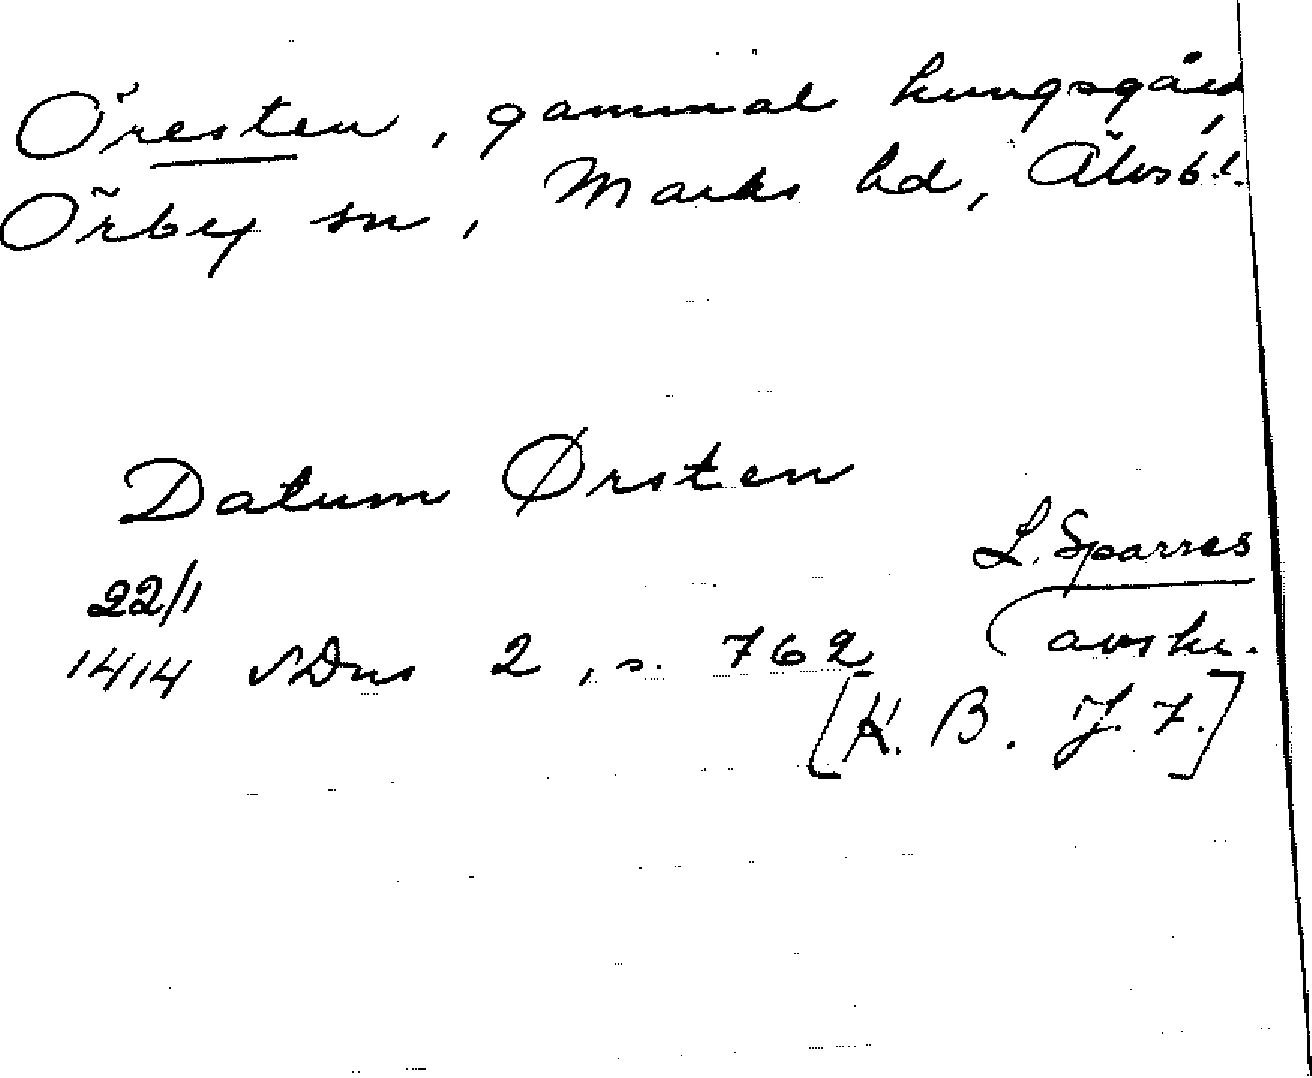 Öresten, gammal kungsgård,
Örby sn, Marks hd, Älvsb.l.
Datum Ørsten
22/1
1414 SDns 2, s. 762
L. Sparres
avskr.
[K. B. J. 7.]